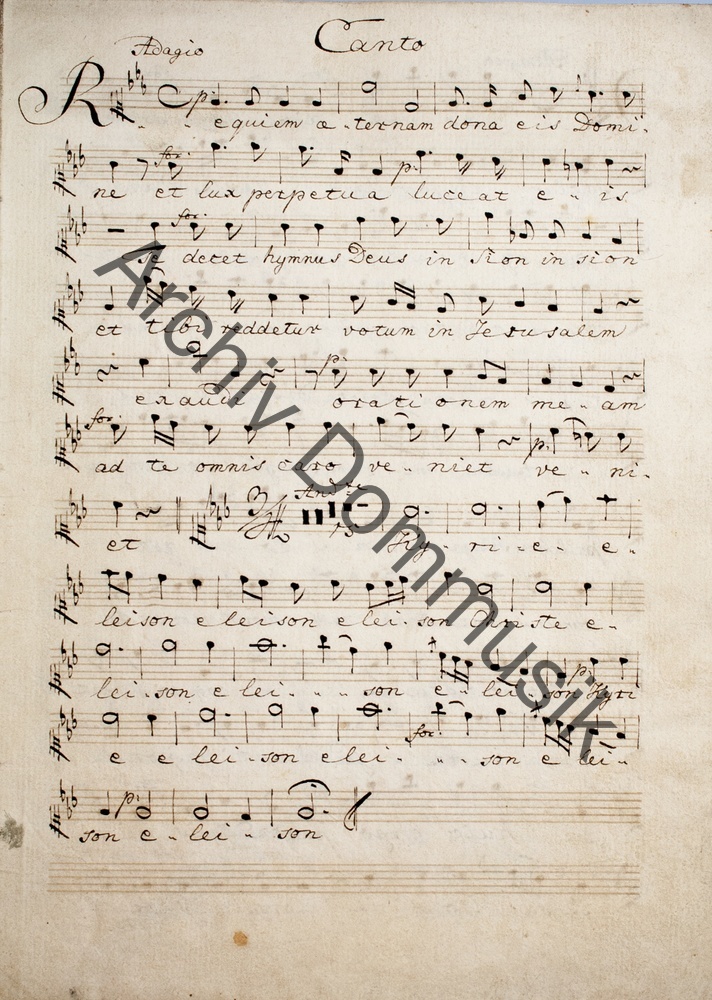 Canto
Adagio
p:
Requiem æ - ternam dona eis Domi -
for:
p:
ne et lux perpetua luceat e - is
for:
Te decet hymnus Deus in Sion in sion
et tibi reddetur votum in Jerusalem
p:
exaudi orationem me - am
for:
p:
ad te omnis caro ve - niet ve - ni -
3
And:te
et Ky - ri - e - e -
leison eleison elei - son Christe e -
p:
lei - son e lei - - - son e - lei - son Kyri
for:
e e lei - son elei - - - son e lei -
p:
son e - lei - son
Archiv Dommusik